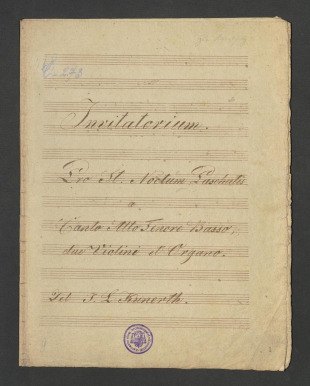 Invitatorium.
Pro II. Nocturno Paschatis
a
Canto Alto Tenore Basso,
due Violini et Organo.
Del J. L. Kunerth.